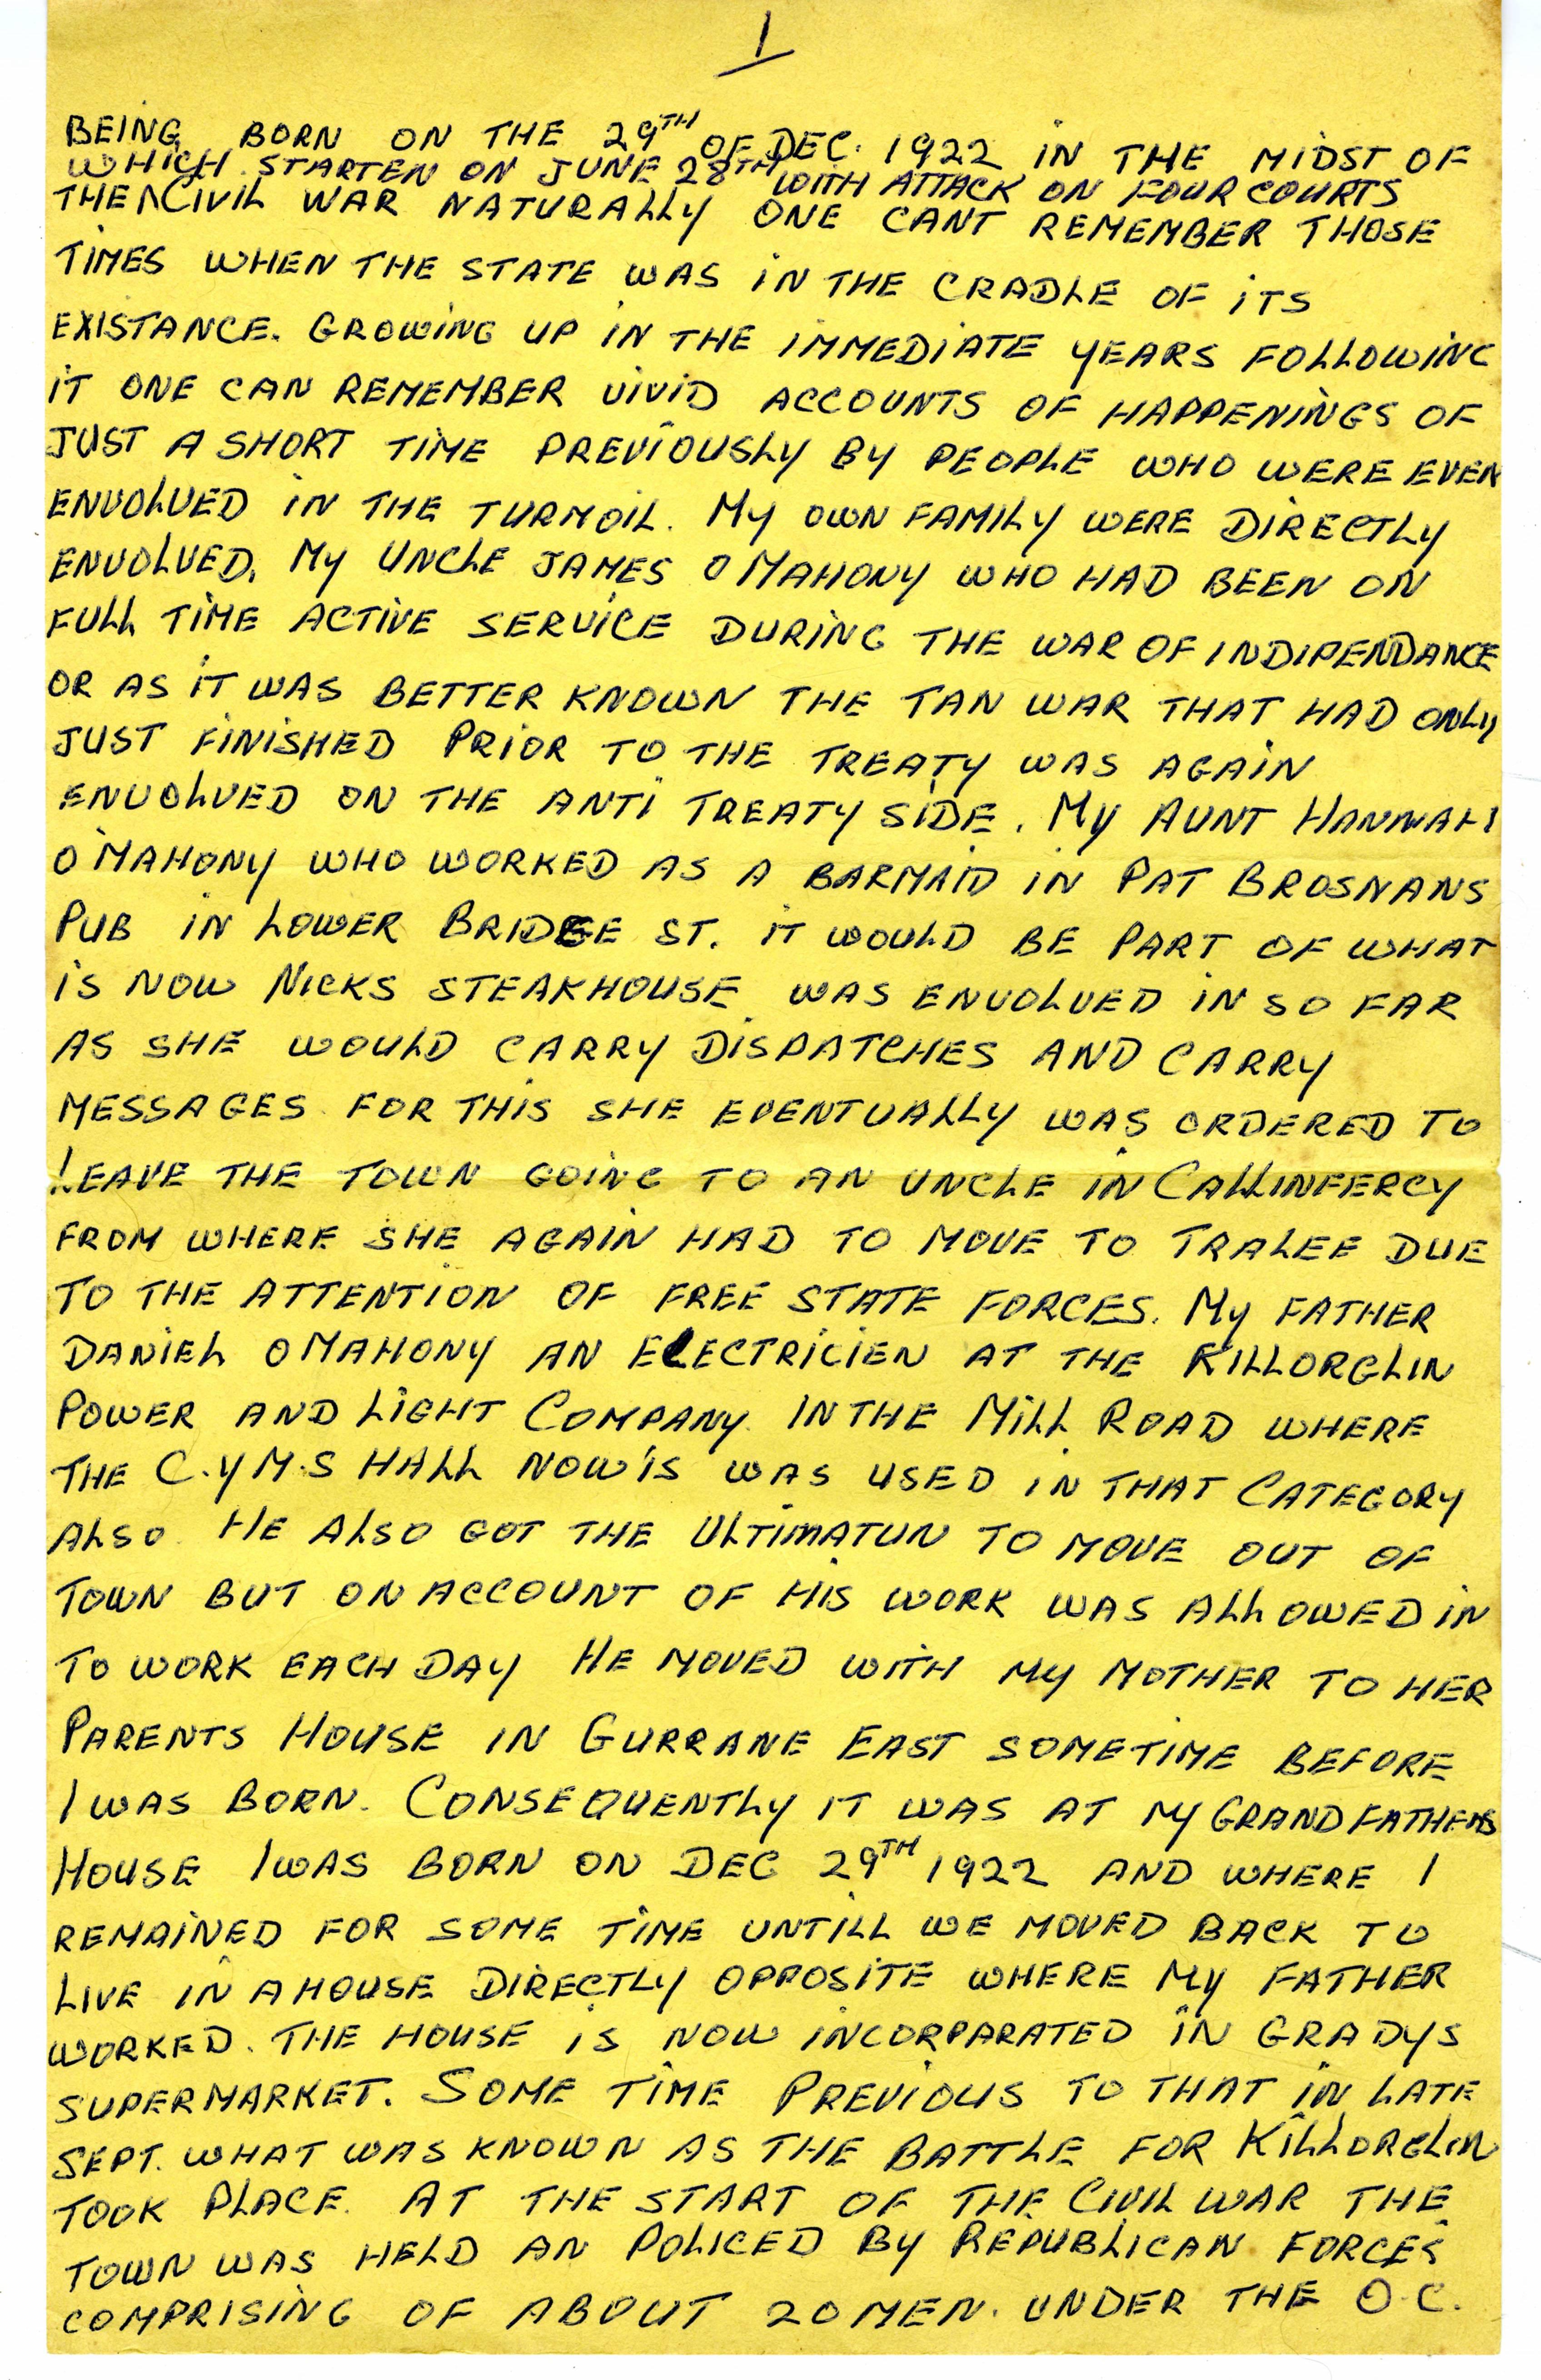 1
BEING BORN ON THE 29TH OF DEC. 1922 IN THE MIDST OF
WHICH STARTEN ON JUNE 28TH WITH ATTACK ON FOUR COURTS
THE CIVIL WAR NATURALLY ONE CANT REMEMBER THOSE
TIMES WHEN THE STATE WAS IN THE CRADLE OF ITS
EXISTANCE. GROWING UP IN THE IMMEDIATE YEARS FOLLOWING
IT ONE CAN REMEMBER VIVID ACCOUNTS OF HAPPENINGS OF
JUST A SHORT TIME PREVIOUSLY BY PEOPLE WHO WERE EVEN
ENVOLVED IN THE TURMOIL. MY OWN FAMILY WERE DIRECTLY
ENVOLVED. MY UNCLE JAMES O MAHONY WHO HAD BEEN ON
FULL TIME ACTIVE SERVICE DURING THE WAR OF INDIPENDANCE
OR AS IT WAS BETTER KNOWN THE TAN WAR THAT HAD ONLY
JUST FINISHED PRIOR TO THE TREATY WAS AGAIN
ENVOLVED ON THE ANTI TREATY SIDE. MY AUNT HANNAH
O MAHONY WHO WORKED AS A BARMAID IN PAT BROSNANS
PUB IN LOWER BRIDGE ST. IT WOULD BE PART OF WHAT
IS NOW NICKS STEAKHOUSE WAS ENVOLVED IN SO FAR
AS SHE WOULD CARRY DISPATCHES AND CARRY
MESSAGES FOR THIS SHE EVENTUALLY WAS ORDERED TO
LEAVE THE TOWN GOING TO AN UNCLE IN CALLINFERCY
FROM WHERE SHE AGAIN HAD TO MOVE TO TRALEE DUE
TO THE ATTENTION OF FREE STATE FORCES. MY FATHER
DANIEL O MAHONY AN ELECTRICIEN AT THE KILLORGLIN
POWER AND LIGHT COMPANY IN THE MILL ROAD WHERE
THE C.Y M.S HALL NOW IS WAS USED IN THAT CATEGORY
ALSO. HE ALSO GOT THE ULTIMATUN TO MOVE OUT OF
TOWN BUT ON ACCOUNT OF HIS WORK WAS ALLOWED IN
TO WORK EACH DAY HE MOVED WITH MY MOTHER TO HER
PARENTS HOUSE IN GURRANE EAST SOMETIME BEFORE
I WAS BORN. CONSEQUENTLY IT WAS AT MY GRANDFATHERS
HOUSE I WAS BORN ON DEC 29TH 1922 AND WHERE I
REMAINED FOR SOME TIME UNTILL WE MOVED BACK TO
LIVE IN A HOUSE DIRECTLY OPPOSITE WHERE MY FATHER
WORKED. THE HOUSE IS NOW INCORPARATED IN GRADYS
SUPERMARKET. SOME TIME PREVIOUS TO THAT IN LATE
SEPT. WHAT WAS KNOWN AS THE BATTLE FOR KILLORGLIN
TOOK PLACE. AT THE START OF THE CIVIL WAR THE
TOWN WAS HELD AN POLICED BY REPUBLICAN FORCES
COMPRISING OF ABOUT 20 MEN. UNDER THE O.C.